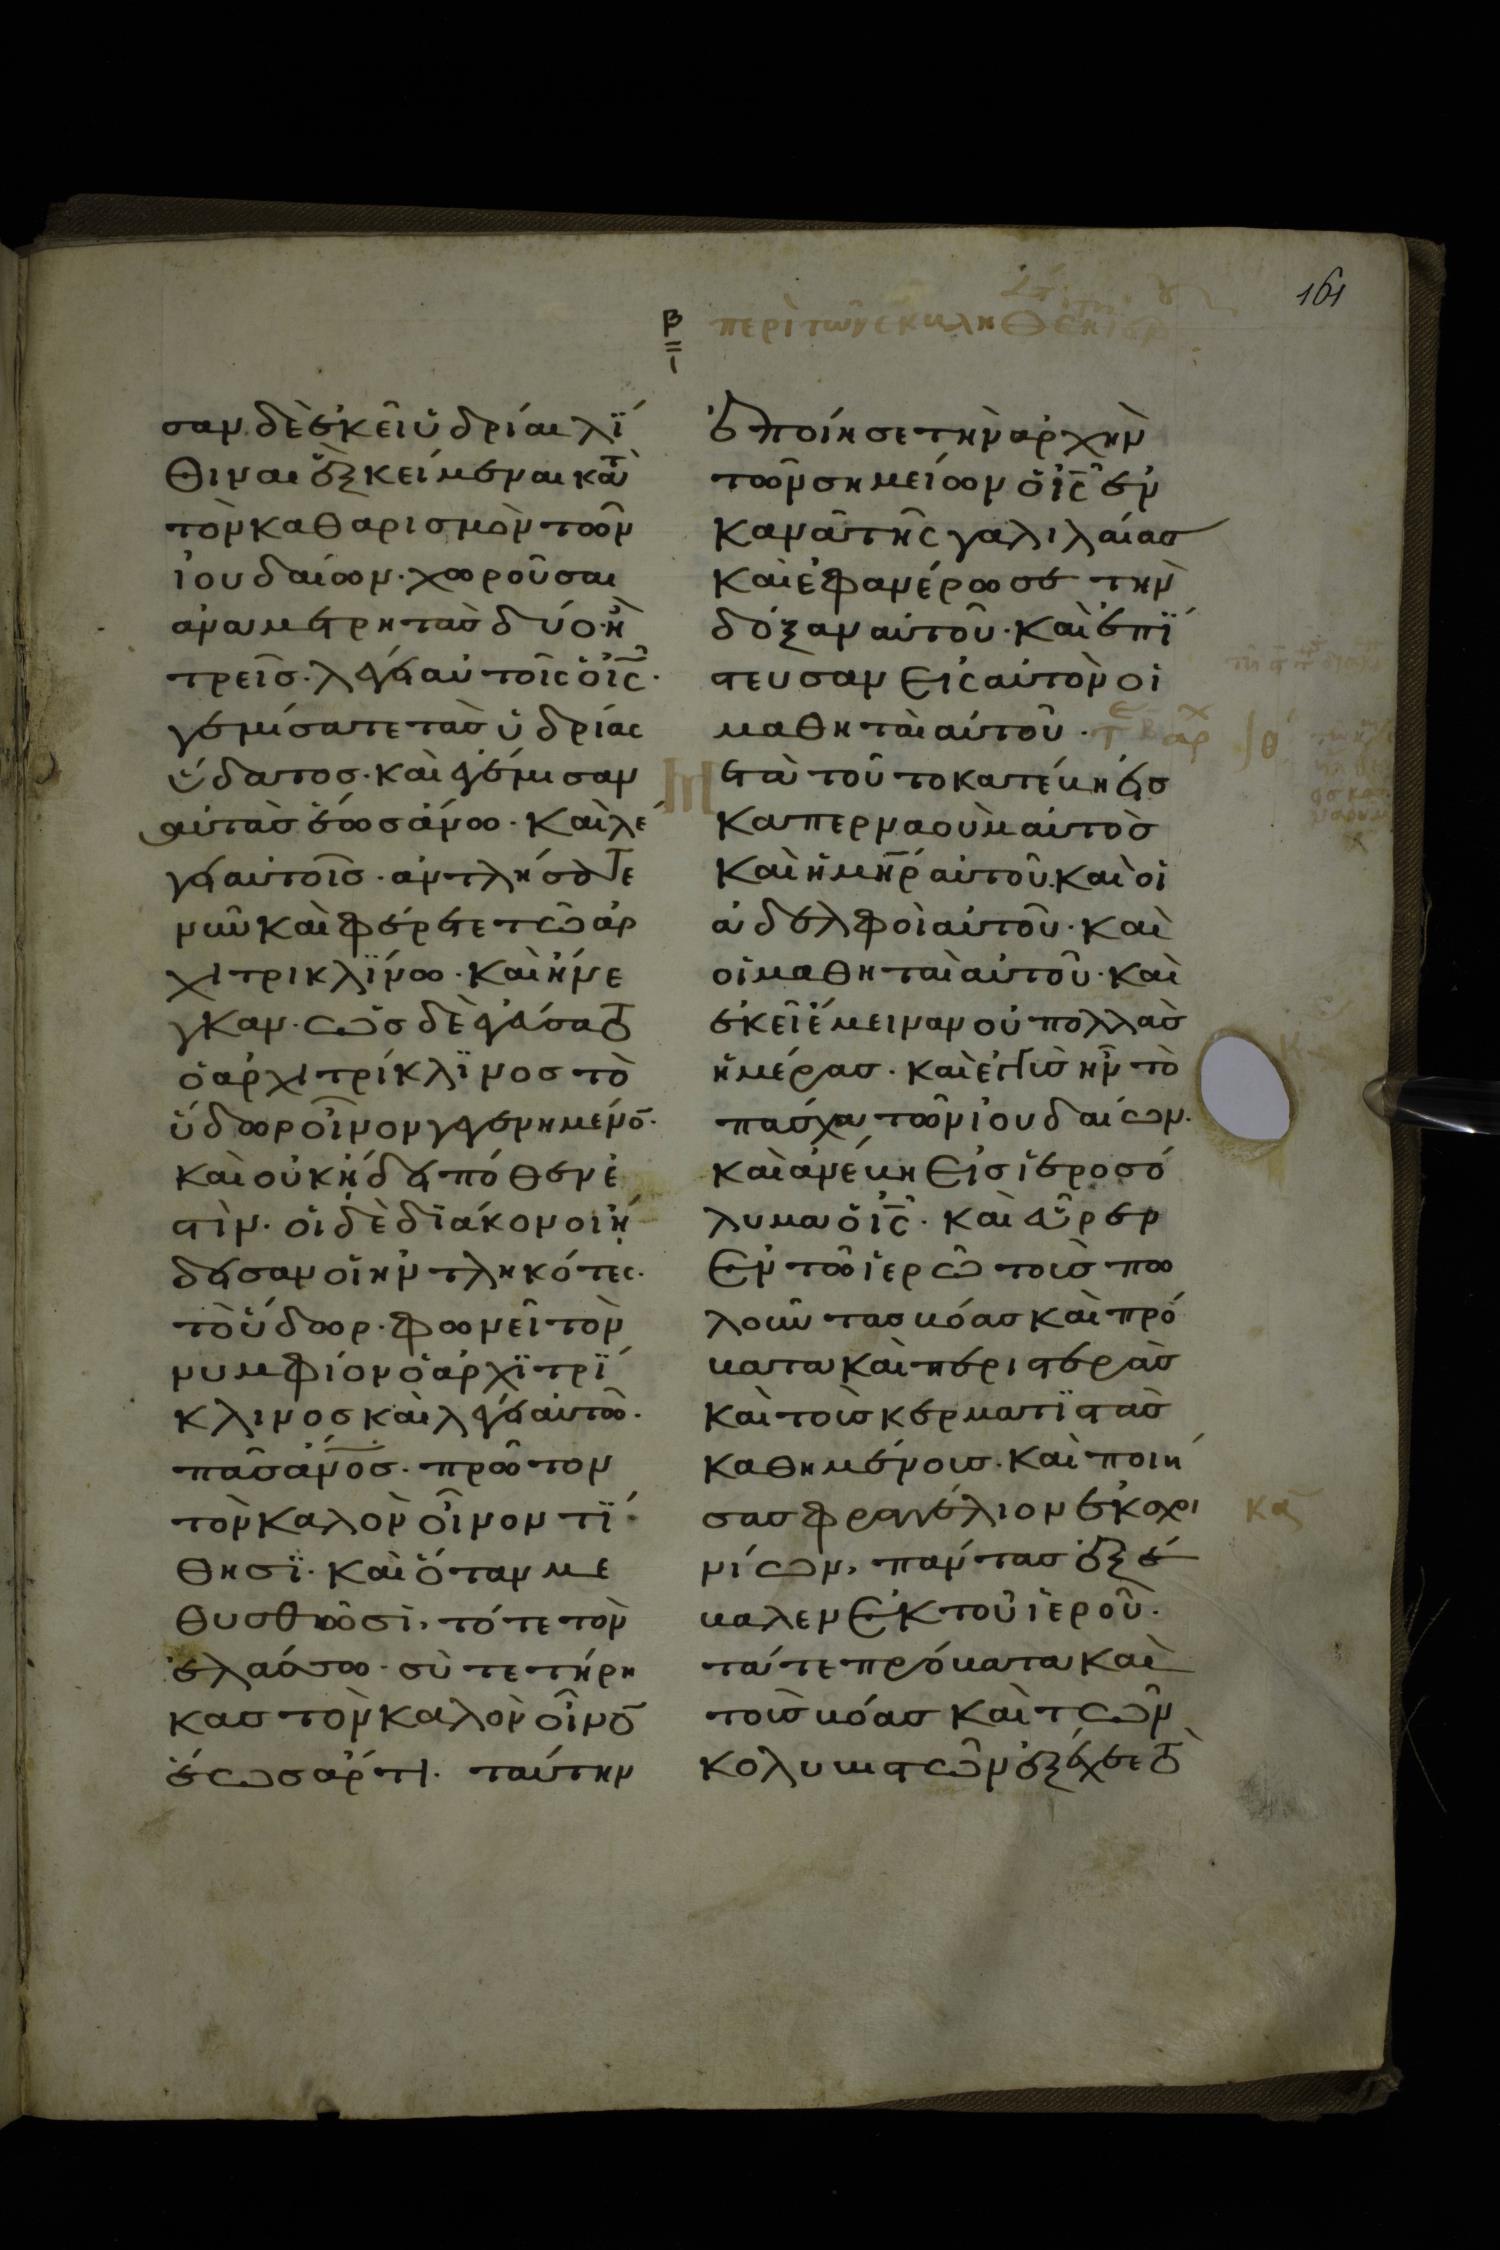 161
β
περὶ τῶν ἐκβληθέ ἐκ ἱερ
σαν δὲ ἐκεῖ ὑδρίαι λΐ
θιναι ἓξ κείμεναι κατὰ
τὸν καθαρισμὸν τῶν
ἰουδαίων· χωροῦσαι
ἀνα μετρητὰσ δύο· ἢ
τρεῖσ· λέγει αὐτοῖς ὁ ἰς̅·
γεμίσατε τὰσ ὑδρίας
ὕδατοσ· καὶ ἐγέμισαν
αὐτὰσ ἕωσ ἄνω· καὶ λέ
γει αὐτοῖσ· ἀντλήσατε
νῦν καὶ φέρετε τῶ ἀρ
χιτρικλΐνω· καὶ ἤνε
γκαν· ὡσ δὲ ἐγεύσατο
ὁ ἀρχιτρίκλϊνοσ τὸ
ὕδωρ οἶνον γεγενημένο̅·
καὶ οὐκ ἤδει πόθεν ἐ
στίν· οἱ δὲ δϊάκονοι ἤ
δεισαν οἱ ἠντληκότες·
τὸ ὕδωρ· φωνεῖ τὸν
νυμφίον ὁ ἀρχϊτρΐ
κλινοσ καὶ λέγει αὐτῶ·
πᾶσ ἄν̅οσ̅· πρῶτον
τὸν καλὸν οἶνον τΐ
θησϊ· καὶ ὅταν με
θυσθῶσὶ, τότε τὸν
ἐλάσσω· σὺ τετήρη
κασ τὸν καλὸν οἶνο̅
ἕωσ ἄρτι· ταύτην
ἐποίησε τὴν ἀρχὴν
τῶν σημείων ὁ ἰς̅ ἐν
κανᾶ τῆς γαλιλαίασ
καὶ ἐφανέρωσε τὴν
δόξαν αὐτοῦ· καὶ ἐπΐ
στευσαν εἰς αὐτὸν οἱ
μαθηταὶ αὐτοῦ·
μετὰ τοῦτο κατέβη εἰσ
καπερναοὺμ αὐτὸσ
καὶ ἡ μη̅ρ αὐτοῦ· καὶ οἱ
ἀδελφοὶ αὐτοῦ· καὶ
οἱ μαθηταὶ αὐτοῦ· καὶ
ἐκεῖ ἔμειναν οὐ πολλὰσ
ἡμέρασ· καὶ ἐγγὺσ ἦν τὸ
πάσχα τῶν ἰουδαίων·
καὶ ἀνέβη εἰσ ἱεροσό
λυμα ὁ ἰς̅· καὶ εὗρεν
ἐν τῶ ἱερῶ τοὺσ πω
λοῦντασ βόασ καὶ πρό
βατα καὶ περιστερὰσ
καὶ τοὺσ κερματϊστὰσ
καθημένουσ· καὶ ποιή
σασ φραγγέλιον ἐκ σχοι
νίων, πάντασ ἐξέ
βαλεν ἐκ τοῦ ἱεροῦ·
τά τε πρόβατα καὶ
τοὺσ βόασ καὶ τῶν
κολυβιστῶν ἐξέχεε τὸ